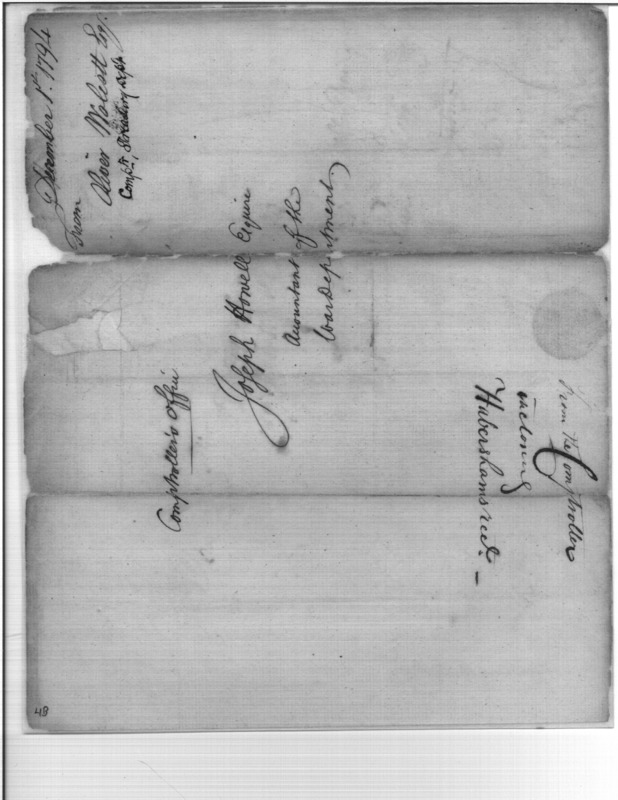 December 1st. 1794
From
Oliver Wolcott Esqr.
Compr. Treasury Dept.
Joseph Howell Esquire
Accountant of the
War Department
Comptroller's Office
From the Comptroller
Inclosing
Habershams rect. —
48